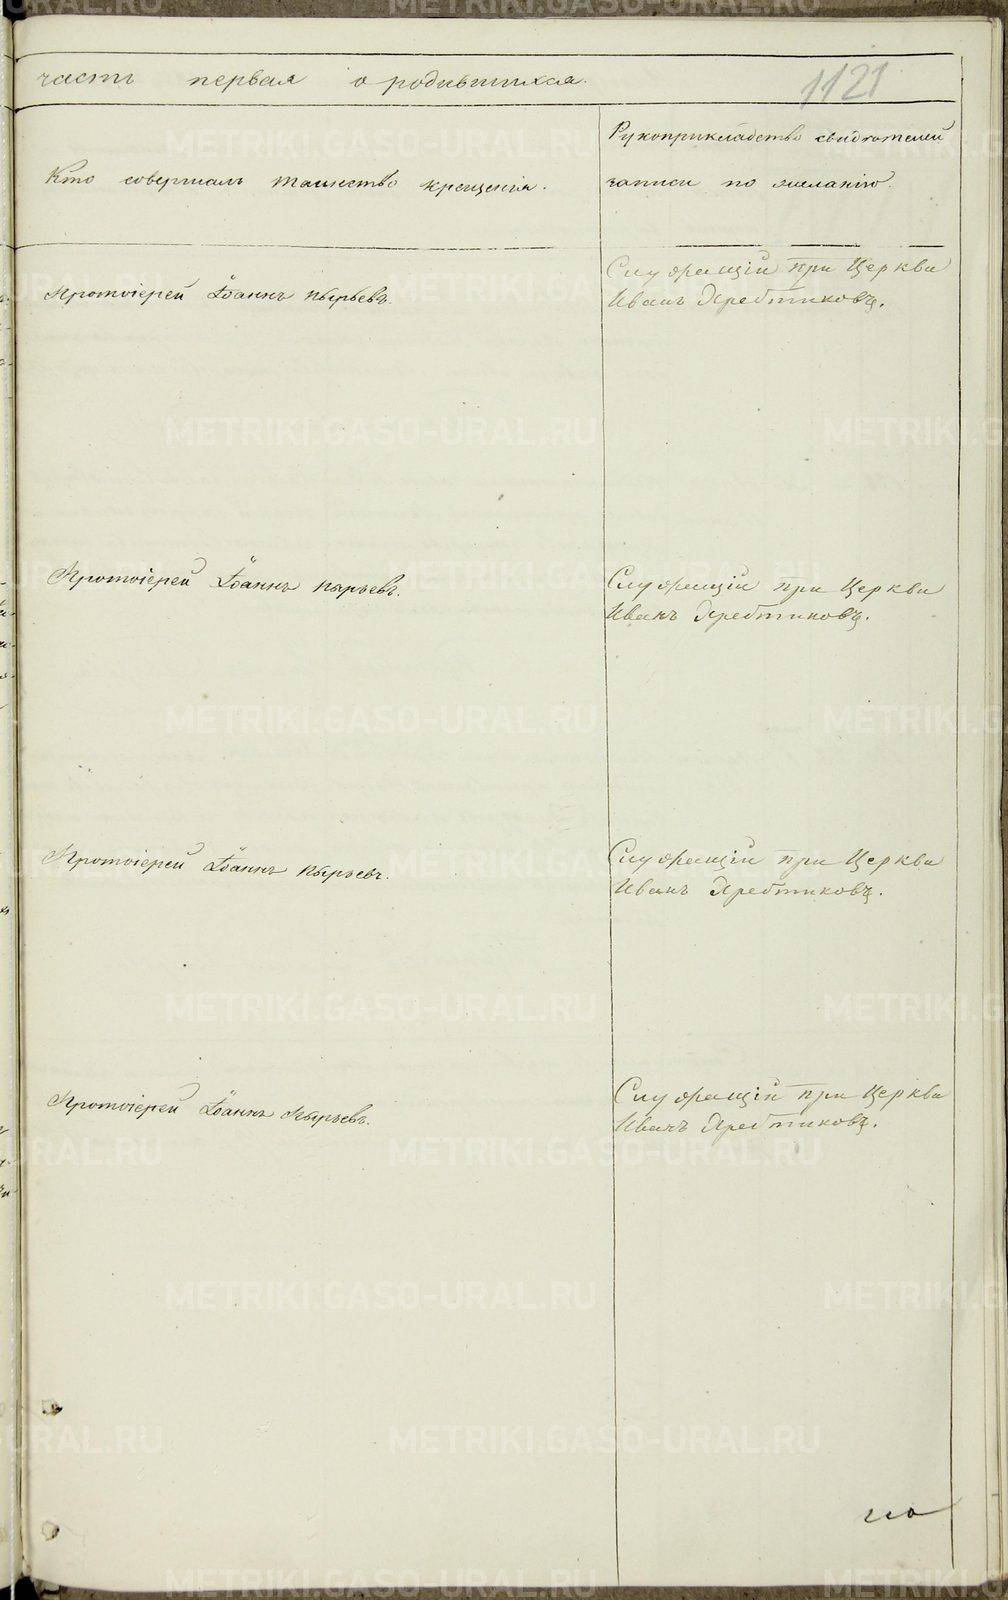 часть первая о родившихся.
1121
Кто совершалъ таинство крещенія.
Рукоприкладство свидѣтелей
записи по желанію.
Протоіерей Іоаннъ Пырьевъ.
Служащій при Церкви
Иванъ
Протоіерей Іоаннъ Пырьевъ.
Служащій при Церкви
Иванъ
Протоіерей Іоаннъ Пырьевъ.
Служащій при Церкви
Иванъ
Протоіерей Іоаннъ Пырьевъ.
Служащій при Церкви
Иванъ
METRIKI.GASO-URAL.RU